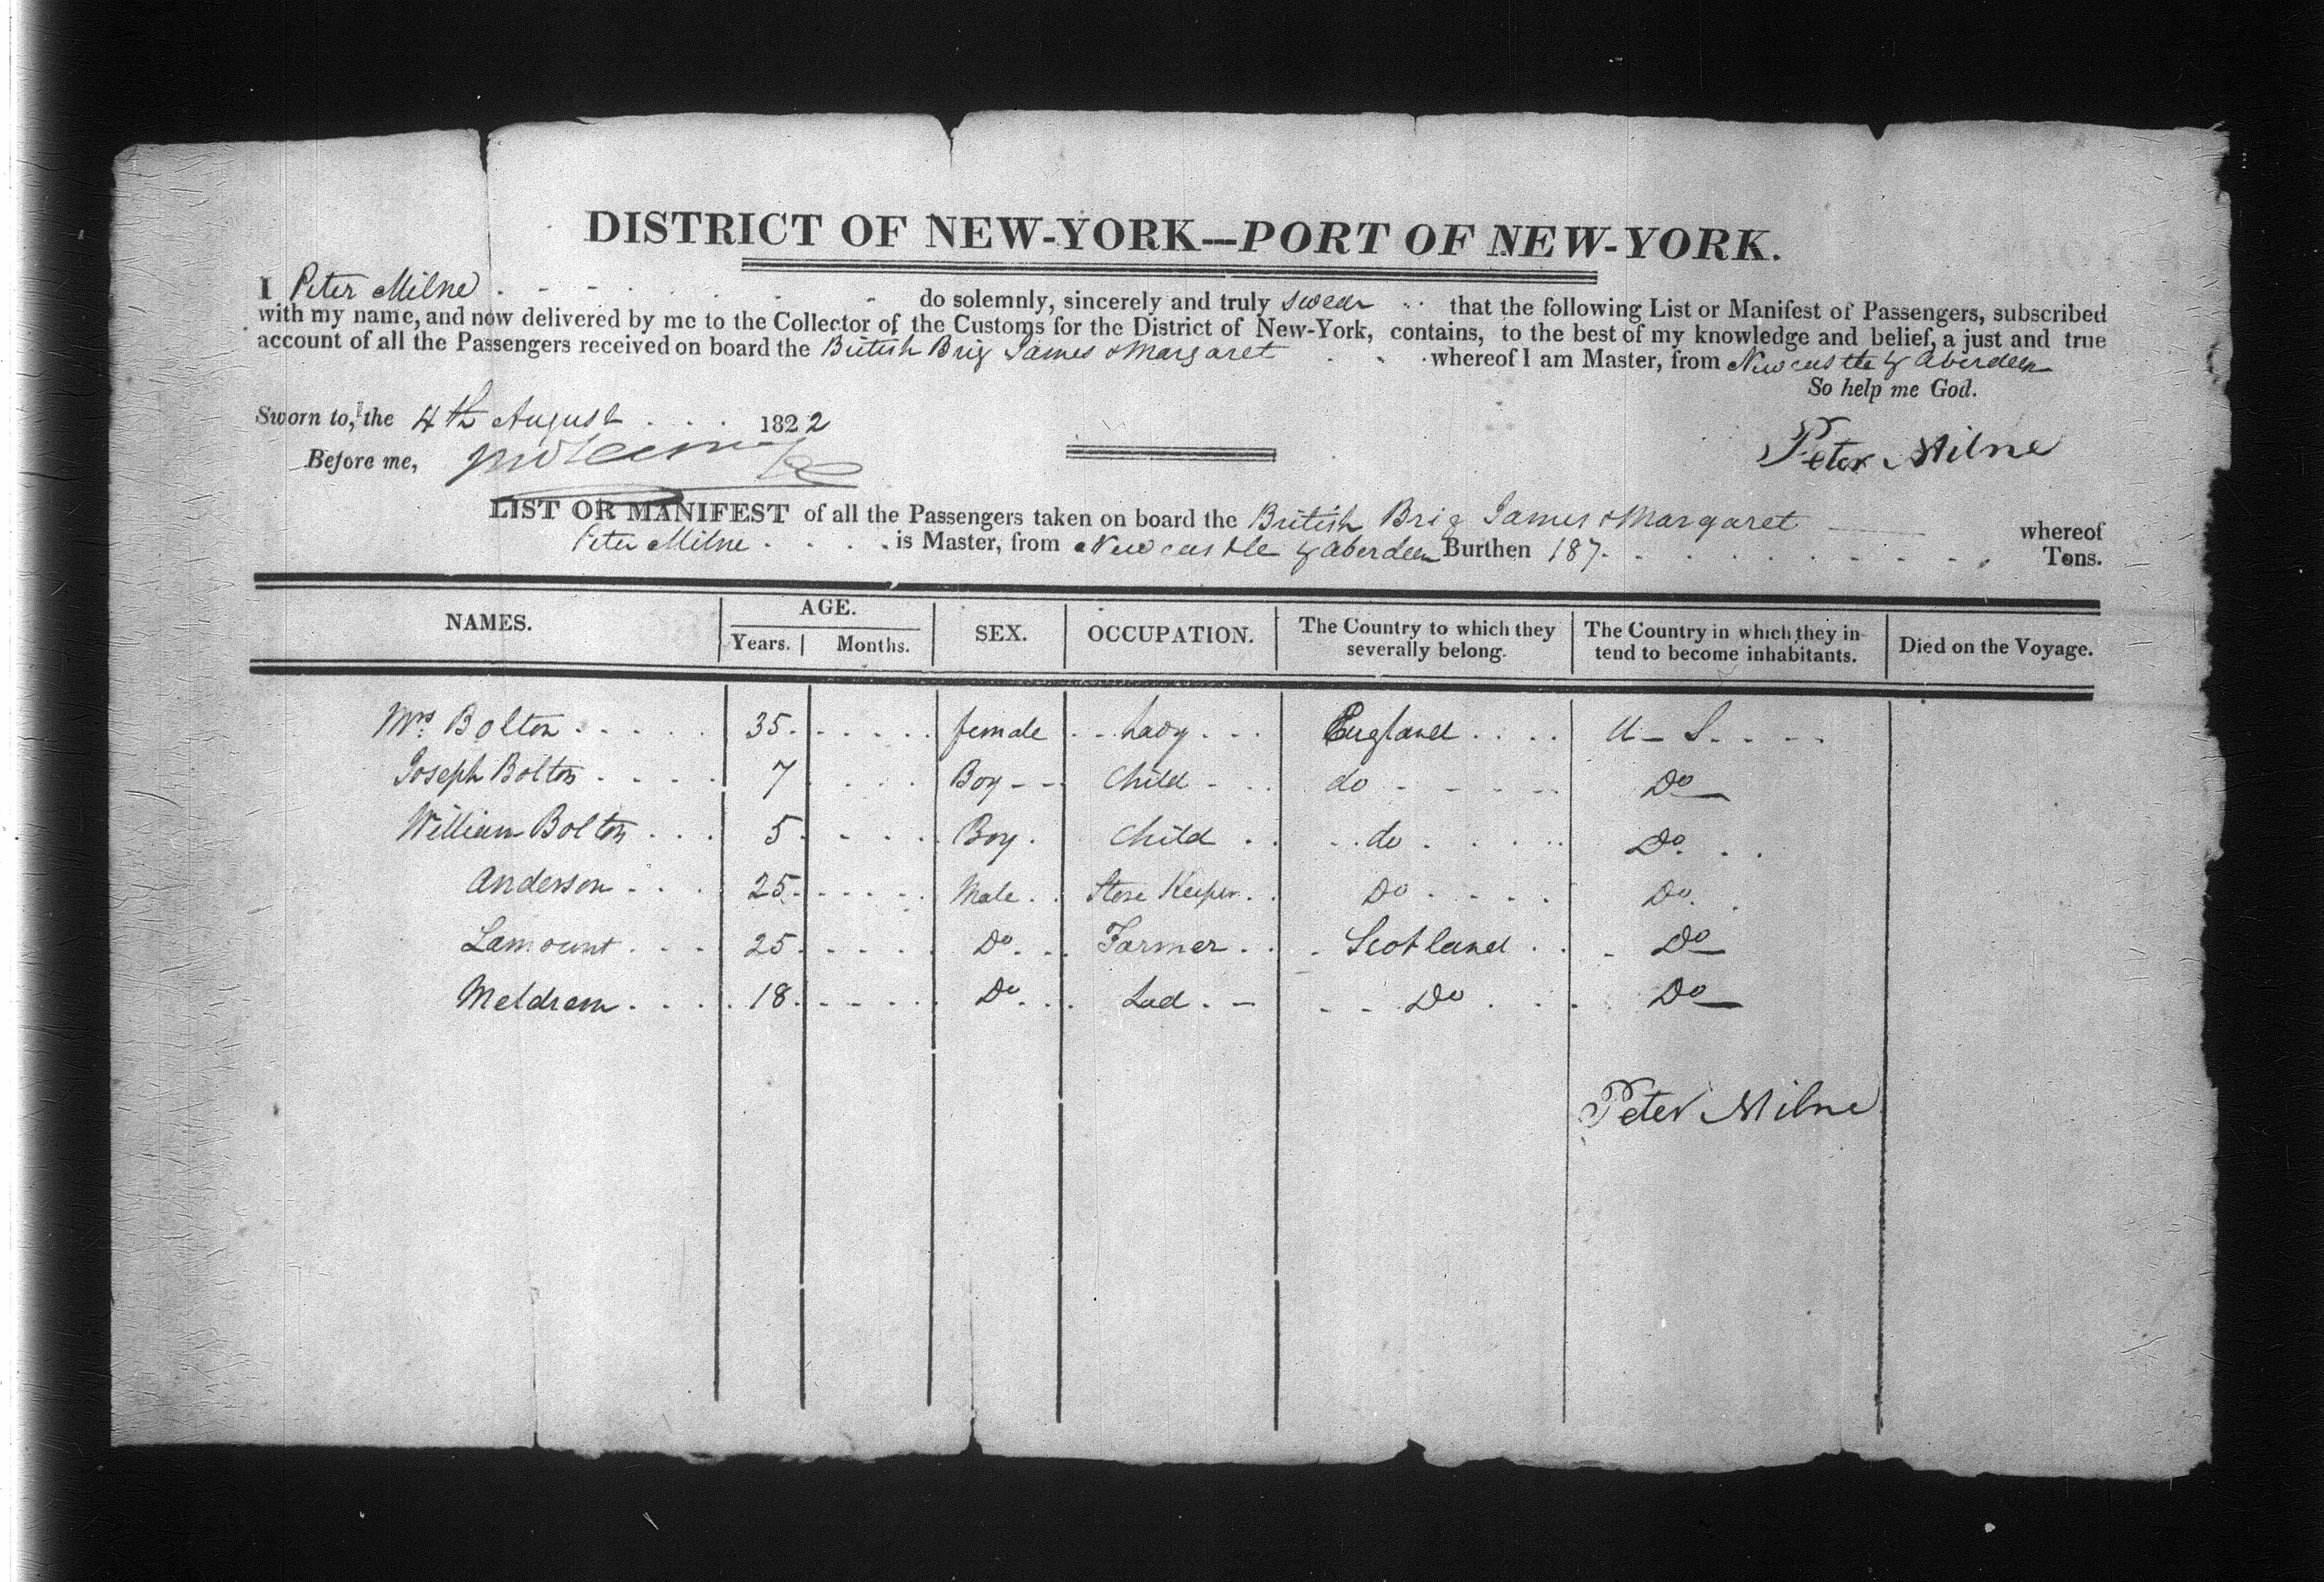 DISTRICT OF NEW-YORK—PORT OF NEW-YORK.
I Peter Milne do solemnly, sincerely and truly swear that the following List or Manifest of Passengers, subscribed
with my name, and now delivered by me to the Collector of the Customs for the District of New-York, contains, to the best of my knowledge and belief, a just and true
account of all the Passengers received on board the British Brig James & Margaret whereof I am Master, from Newcastle & Aberdeen
So help me God.
Sworn to, the 4th August 1822
Peter Milne
Before me,
LIST OR MANIFEST of all the Passengers taken on board the British Brig James & Margaret whereof
Peter Milne is Master, from Newcastle & Aberdeen Burthen 187 Tons.
NAMES. AGE. SEX. OCCUPATION. The Country to which they severally belong. The Country in which they intend to become inhabitants. Died on the Voyage.
Years. Months.
Mrs. Bolton 35 female Lady England U-S
Joseph Bolton 7 Boy Child do Do
William Bolton 5 Boy Child do Do
Anderson 25 Male Store Keeper Do Do
Lamount 25 Do Farmer Scotland Do
Meldrem 18 Do Lad Do Do
Peter Milne